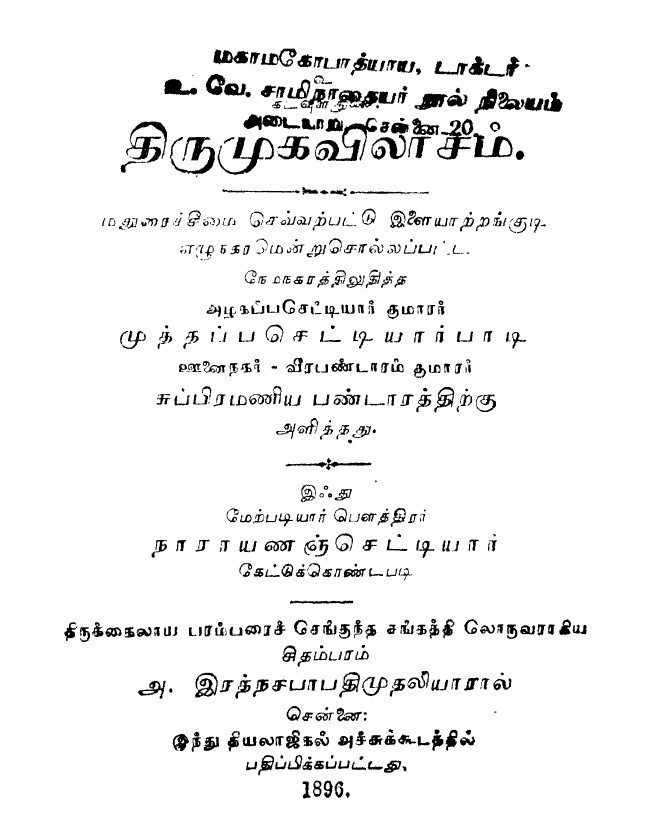 மகாமகோபாத்யாய, டாக்டர்
உ. வே. சாமிநாதையர் நூல் நிலையம்
உ
கடவுள் துணை.
அடையாறு, சென்னை-20.
திருமுகவிலாசம்.
மதுரைச்சீமை செவ்வற்பட்டு இளையாற்றங்குடி
எழுநகரமென்றுசொல்லப்பட்ட
நேமநகரத்திலுதித்த
அழகப்பசெட்டியார் குமாரர்
முத்தப்பசெட்டியார்பாடி
ஊனைநகர் - வீரபண்டாரம் குமாரர்
சுப்பிரமணிய பண்டாரத்திற்கு
அளித்தது.
இஃது
மேற்படியார் பௌத்திரர்
நாராயணஞ்செட்டியார்
கேட்டுக்கொண்டபடி
திருக்கைலாய பரம்பரைச் செங்குந்த சங்கத்தி லொருவராகிய
சிதம்பரம்
அ. இரத்நசபாபதிமுதலியாரால்
சென்னை:
இந்து தியலாஜிகல் அச்சுக்கூடத்தில்
பதிப்பிக்கப்பட்டது.
1896.